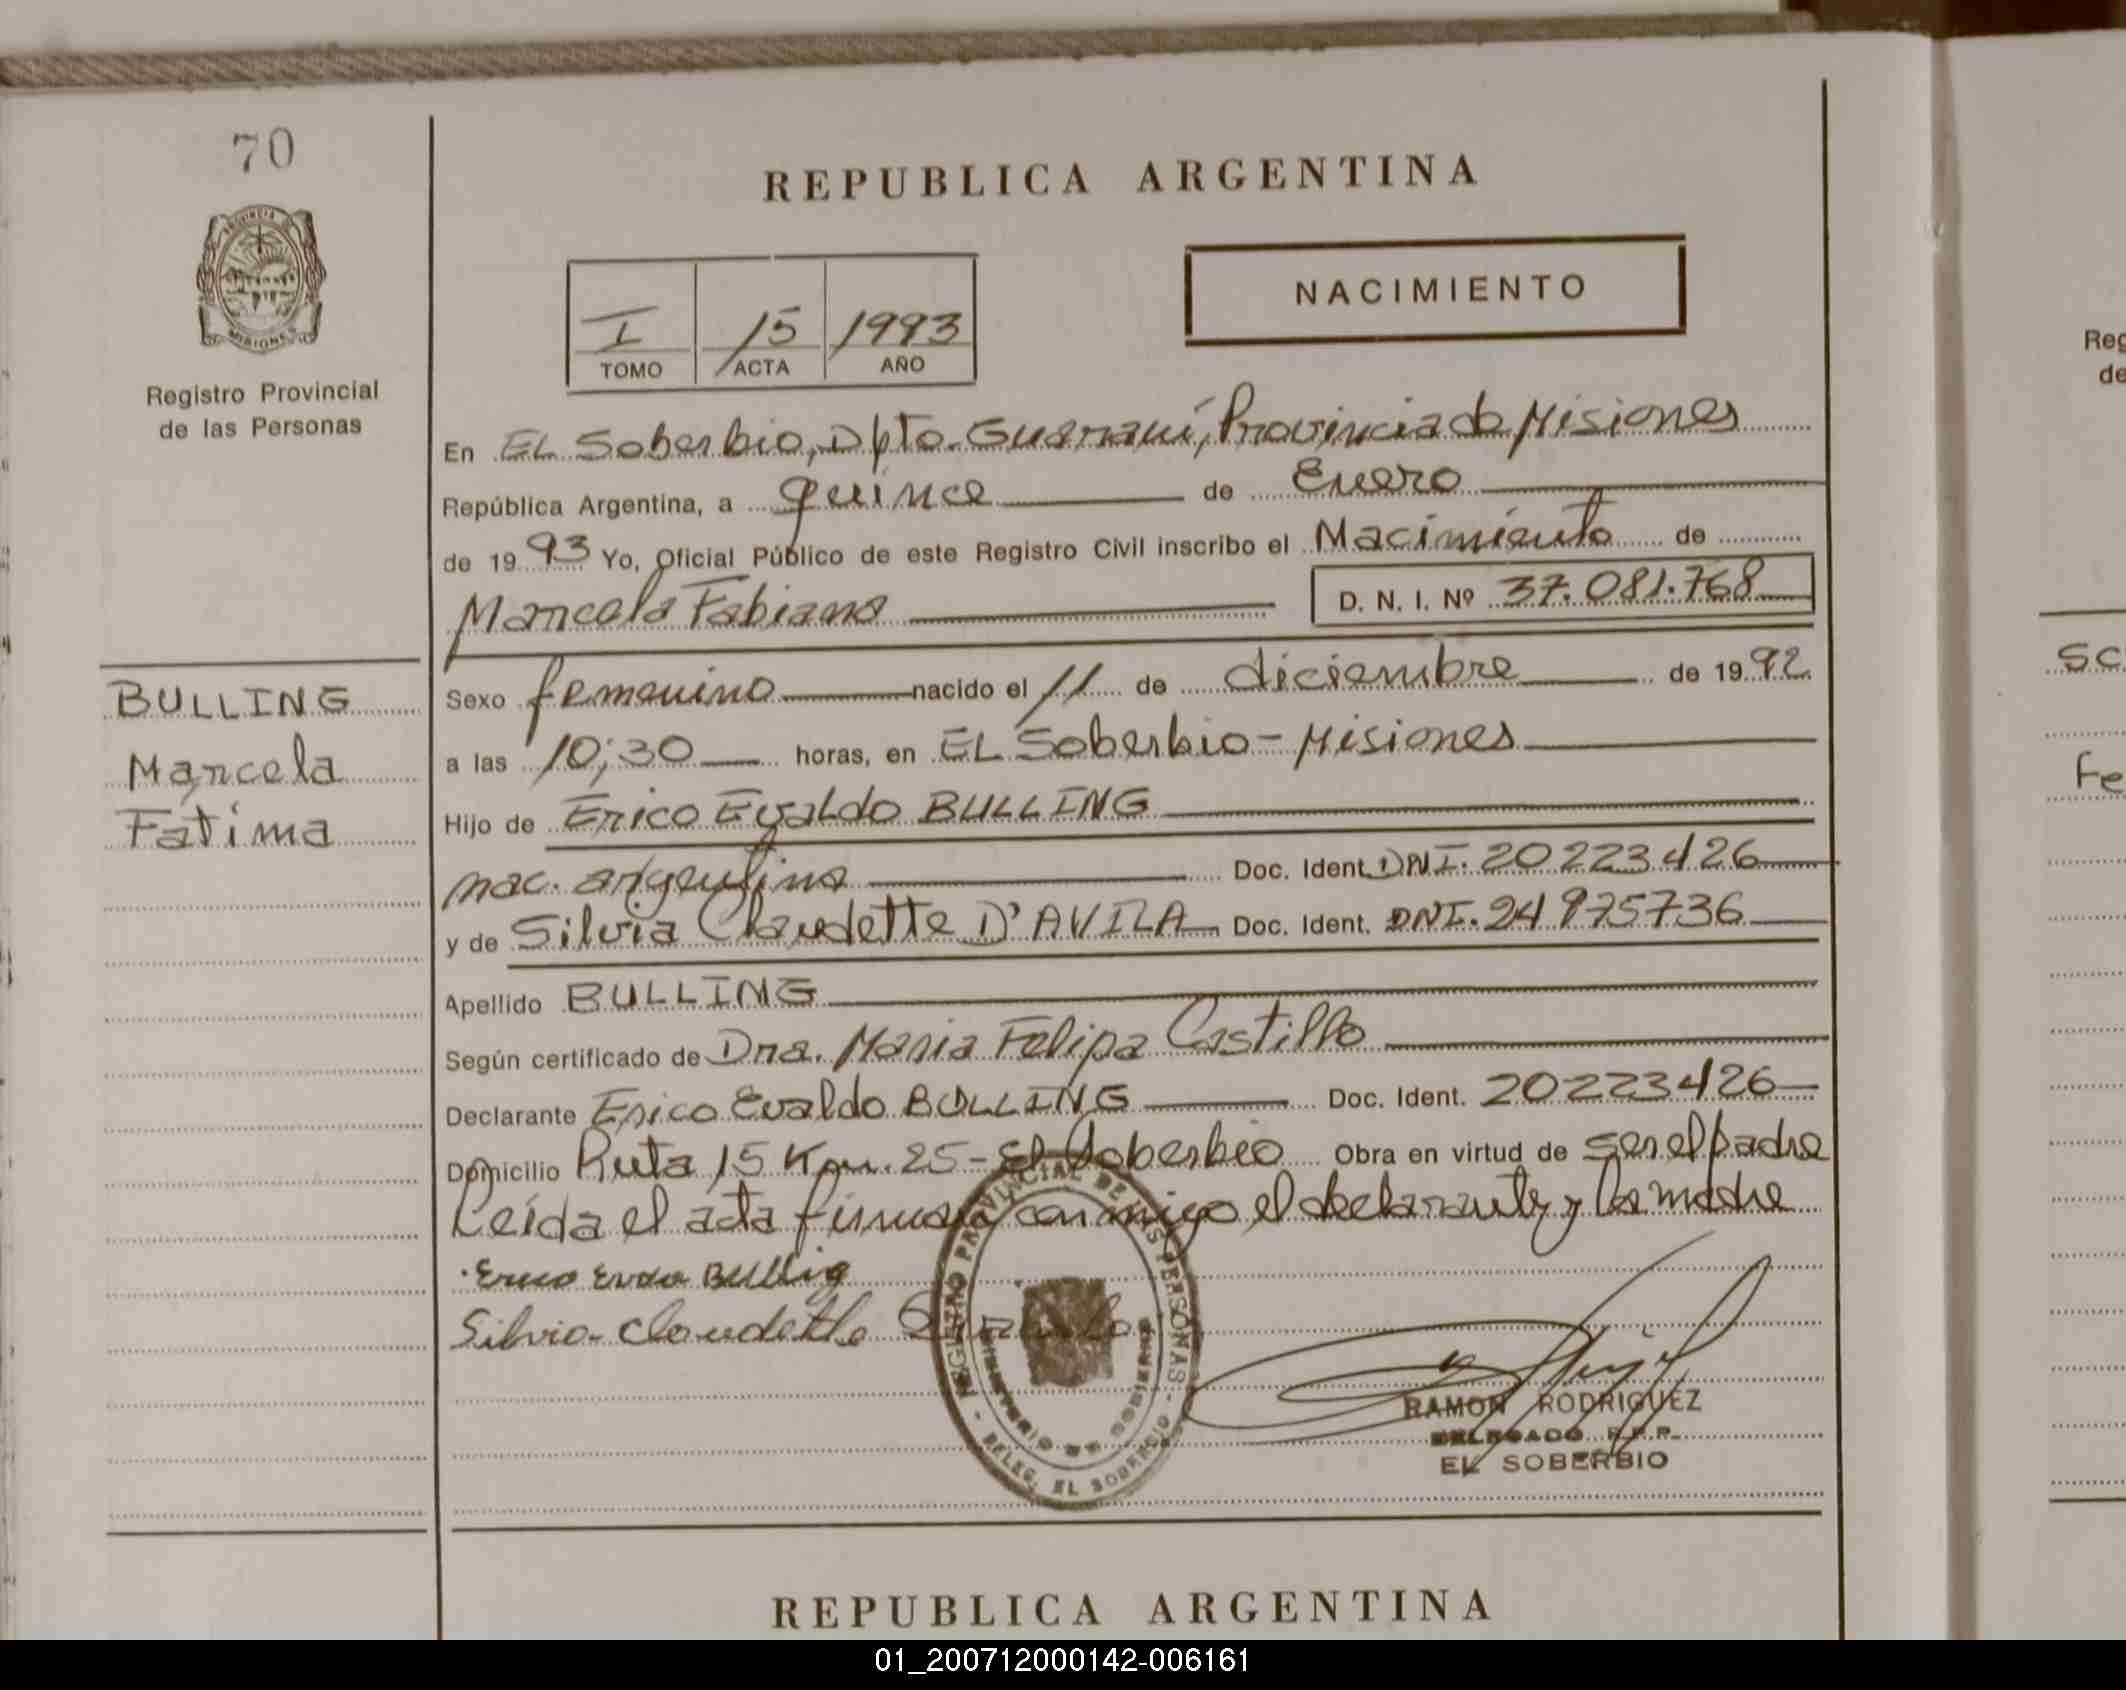 70
PROVINCIA
MISIONES
Registro Provincial
de las Personas
BULLING
Marcela
Fatima
REPUBLICA ARGENTINA
I 15 1993
TOMO ACTA AÑO
NACIMIENTO
En EL Soberbio, Dpto. Guaraní, Provincia de Misiones
República Argentina, a quince de Enero
de 1993 Yo, Oficial Público de este Registro Civil inscribo el Nacimiento de
Marcela Fabiana D. N. I. Nº 37.081.768
Sexo femenino nacido el 11 de diciembre de 1992
a las 10;30 horas, en EL Soberbio - Misiones
Hijo de Erico Evaldo BULLING
nac. argentina Doc. Ident. DNI. 20223426
y de Silvia Claudette D'AVILA Doc. Ident. DNI. 24975736
Apellido BULLING
Según certificado de Dra. Maria Felipa Castillo
Declarante Erico Evaldo BULLING Doc. Ident. 20223426
Domicilio Ruta 15 Km. 25 - El Soberbio Obra en virtud de ser el padre
Leída el acta firman conmigo el declarante y la madre
Silvia Claudette
REGISTRO PROVINCIAL DE LAS PERSONAS - DELEG. EL SOBERBIO -
MINISTERIO DE GOBIERNO
RAMON RODRIGUEZ
DELEGADO R.P.P.
EL SOBERBIO
REPUBLICA ARGENTINA
Reg
de
SC
Fe
01_200712000142-006161